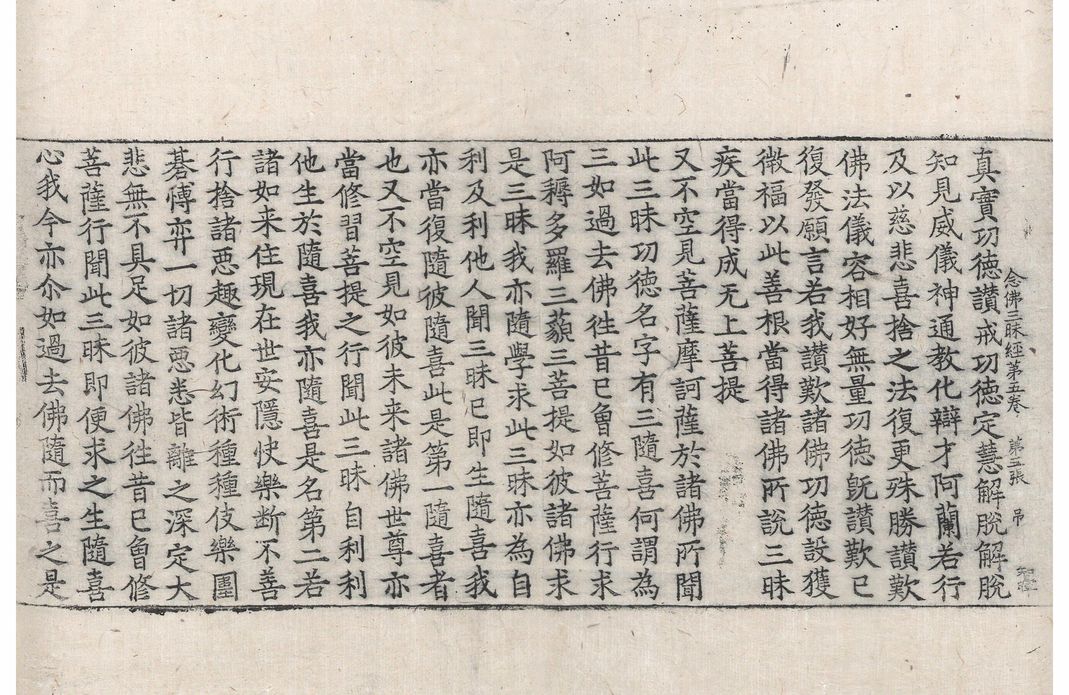 念佛三昧經第五卷 第五張 吊
真實功德讃戒功德定慧解脫解脫
知見威儀神通教化辯才阿蘭若行
及以慈悲喜捨之法復更殊勝讃歎
佛法儀容相好無量功德旣讃歎已
復發願言若我讃歎諸佛功德設獲
微福以此善根當得諸佛所說三昧
疾當得成无上菩提
又不空見菩薩摩訶薩於諸佛所聞
此三昧功德名字有三隨喜何謂為
三如過去佛徃昔已曾修菩薩行求
阿耨多羅三藐三菩提如彼諸佛求
是三昧我亦隨學求此三昧亦為自
利及利他人聞三昧已即生隨喜我
亦當復隨彼隨喜此是第一隨喜者
也又不空見如彼未来諸佛世尊亦
當修習菩提之行聞此三昧自利利
他生於隨喜我亦隨喜是名第二若
諸如来住現在世安隱快樂断不善
行捨諸惡趣變化幻術種種伎樂圍
碁愽弈一切諸惡悉皆離之深定大
悲無不具足如彼諸佛徃昔已曾修
菩薩行聞此三昧即便求之生隨喜
心我今亦尒如過去佛隨而喜之是